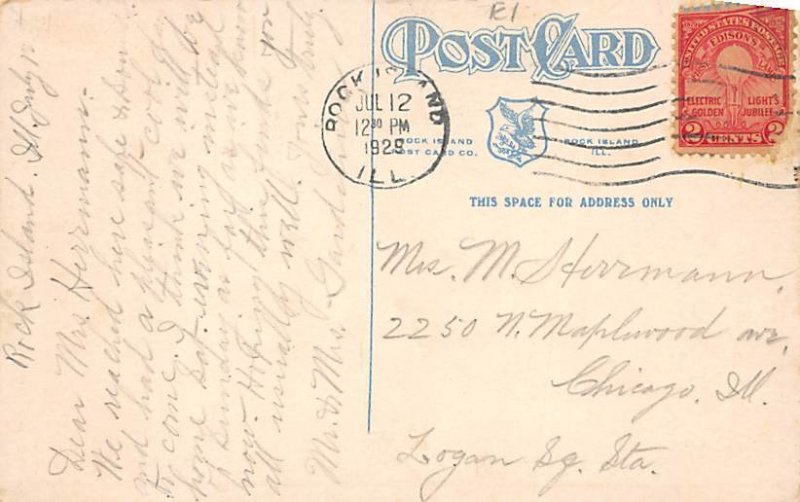 E1
POST CARD
ROCK ISLAND
JUL 12
12 30 PM
1929
ILL.
ROCK ISLAND
POST CARD CO.
ROCK ISLAND
ILL.
UNITED STATES POSTAGE
EDISON'S
FIRST LAMP
ELECTRIC LIGHT'S
GOLDEN JUBILEE
2 CENTS 2
THIS SPACE FOR ADDRESS ONLY
Mrs. M. Herrmann,
2250 N. Maplewood av.,
Chicago, Ill.
Logan Sq. Sta.
Rock Island. Ill. July 12
Dear Mrs. Herrmann:
We reached here safe &
and had a pleasant
to come. I think we will be
home Sat. evening instead
of Sunday as far as we know
now. Hoping this finds you
all usually well. Yours truly
Mr. & Mrs.